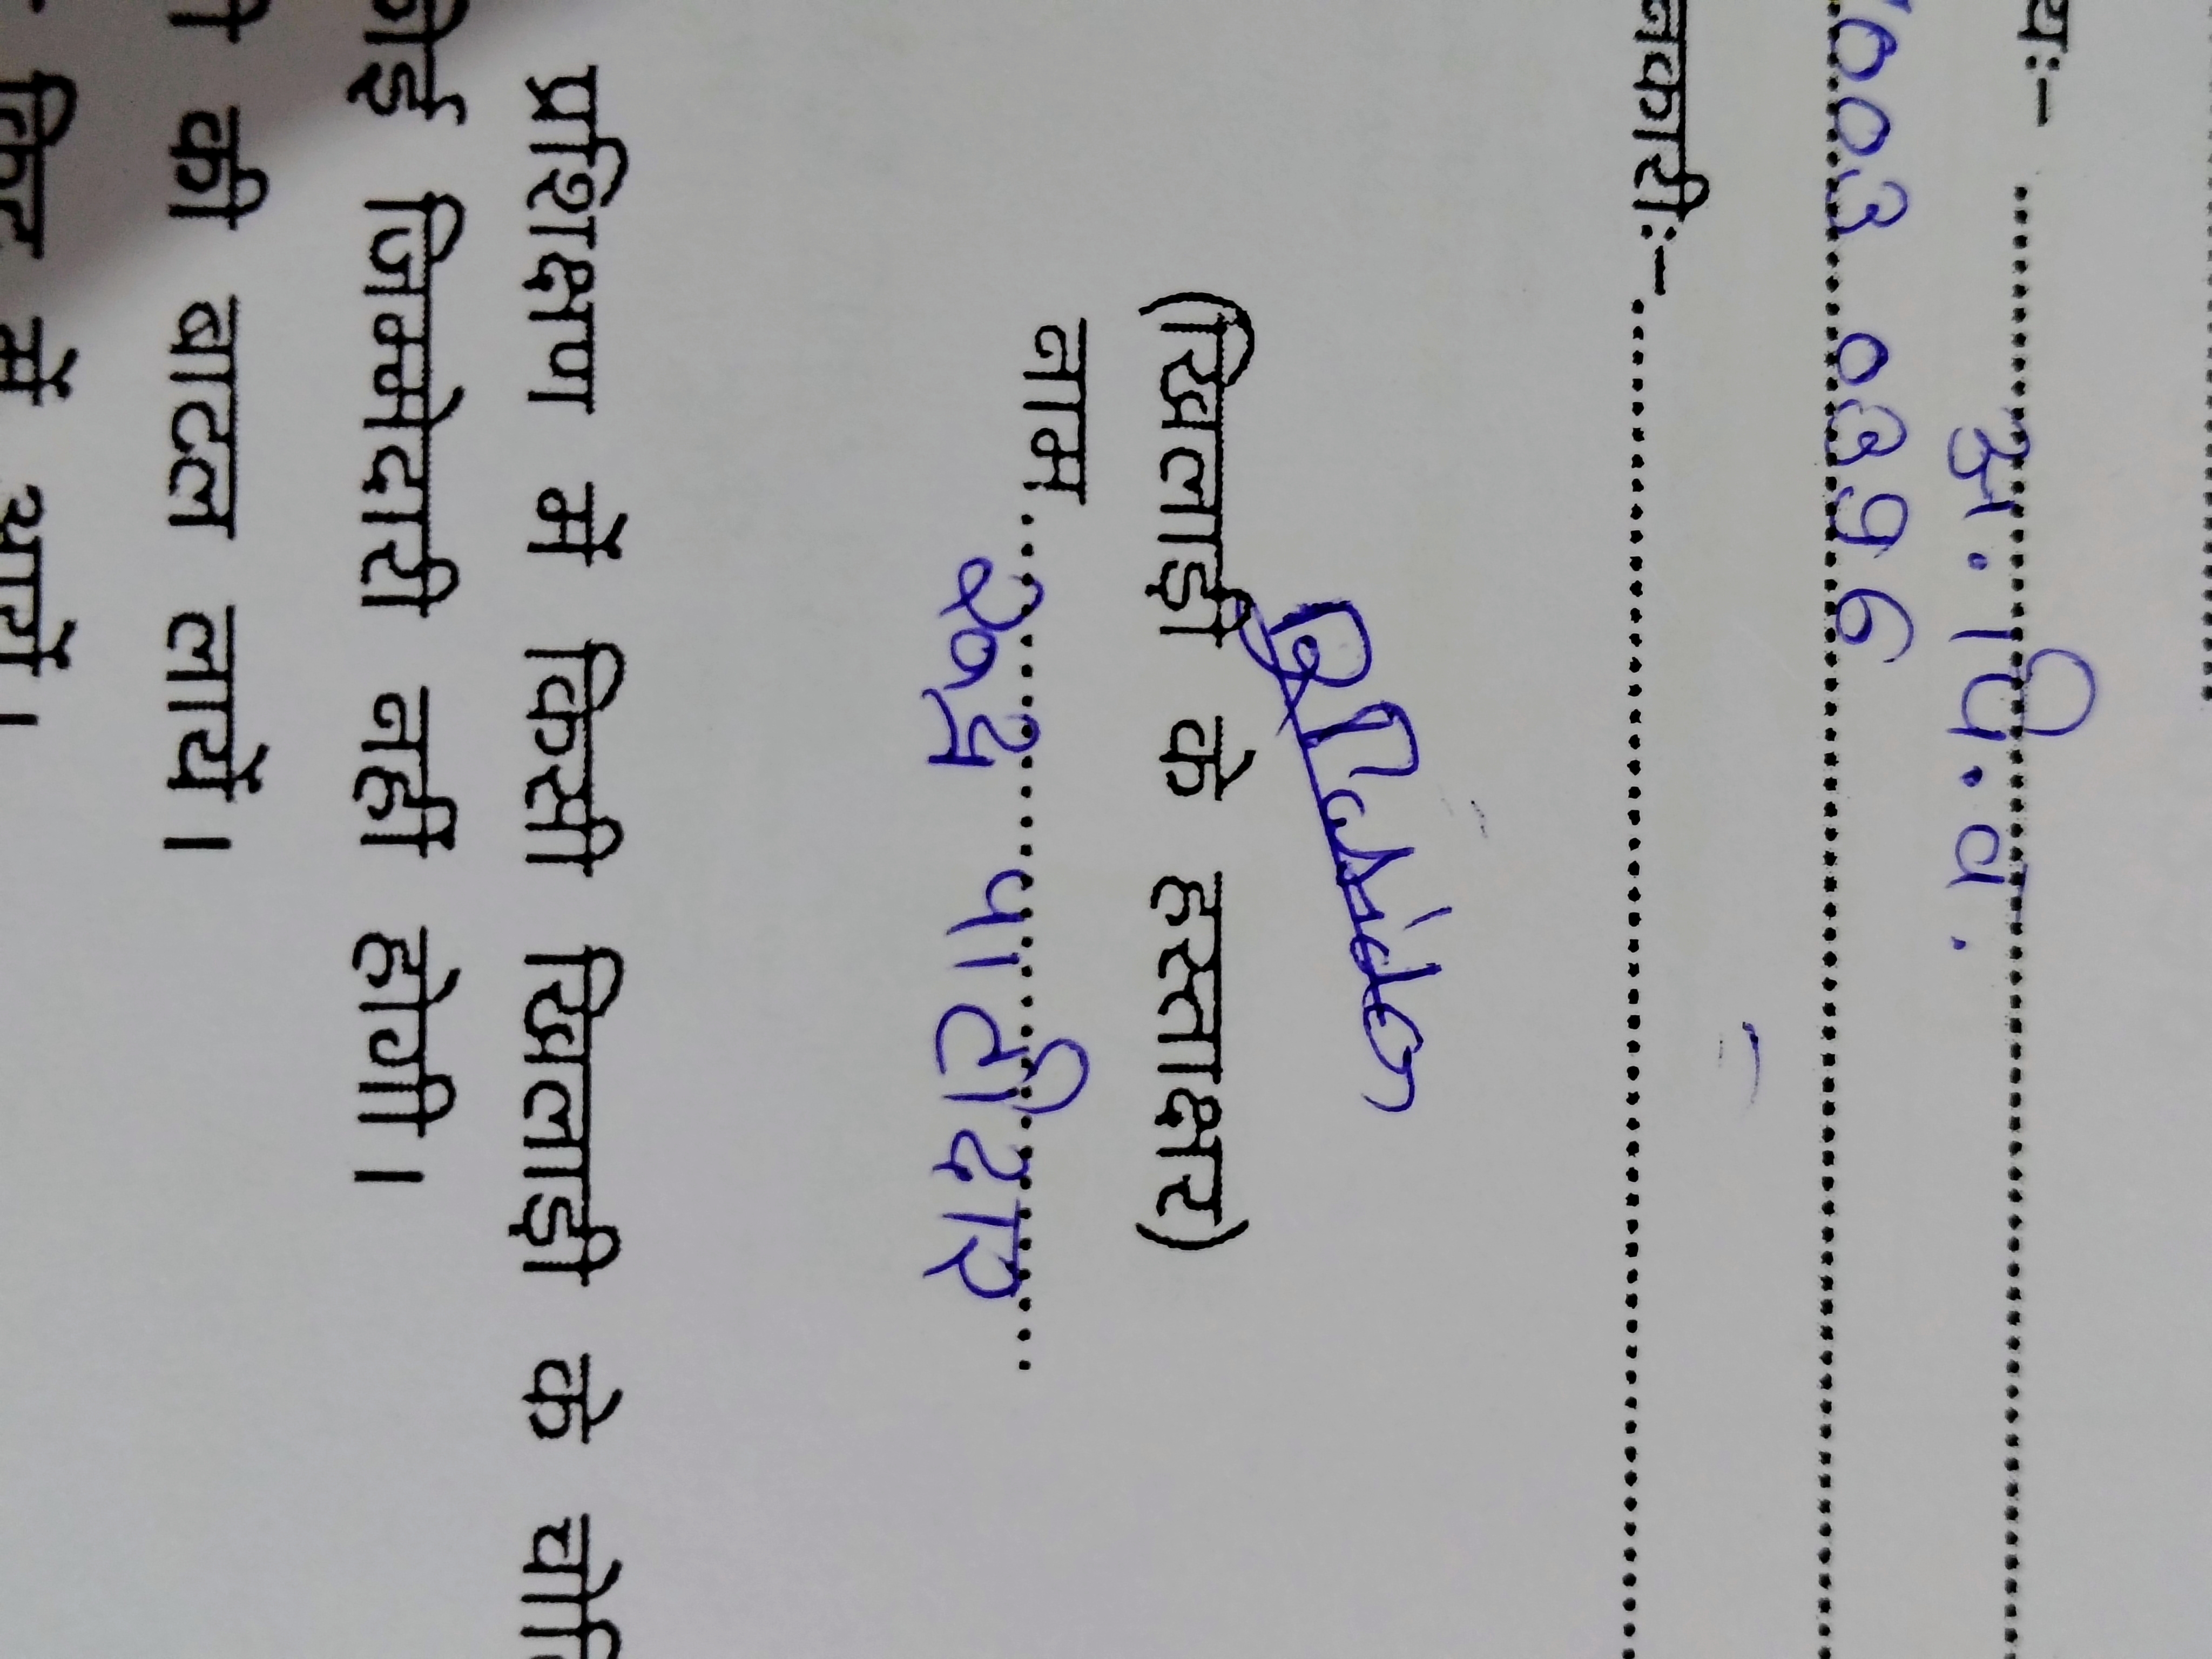 यः– ........ अ. पि. व.
003 0396
नकारी:– ........
(खिलाड़ी के हस्ताक्षर)
नाम........ पाटीदार
प्रशिक्षण में किसी खिलाड़ी के
कोई जिम्मेदारी नहीं होगी।
की बाटल लायें।
किट में आयें।